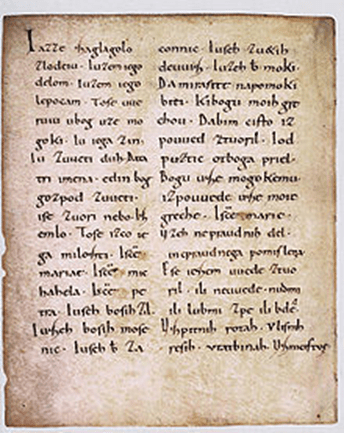 Iazze zaglagolo
zlodeiu. Iuzem iego
delom. Iuzem iego
lepocam. Tose uue
ruiu ubog uze mo
goki. Iu iega Zin,
Iu Zuueti duh. Data
tri imena. edin bog
gozpod Zuueti.
ise Zuori nebo. Iz
emlo. Tose izco ie
ga milozti. Isce
mariae. Isce mic
hahela. Isce pe
tra. Iuseh bosih Zil.
Iuzeh bosih mose
nic. Iuseh b Za
connic. Iuseh Zuetih
deuuiz. Iuzeh b moki.
Da mi raste napomoki
biti. kibogu moih gre
chou. Dabim cisto iz
pouued ztuoril. Iod
puztic otboga priel.
Bogu uze mogokemu
izpouuede uze moie
greche. Isce marie.
uzeh nepraudnih del.
inepraudnega pomislena.
Ese iezem uuede ztuo
ril. ili neuuede. nudmi
ili lubmi Zpe ili bde.
Uzpitnih rotah. Vlisnih
resih. Vtatbinah.